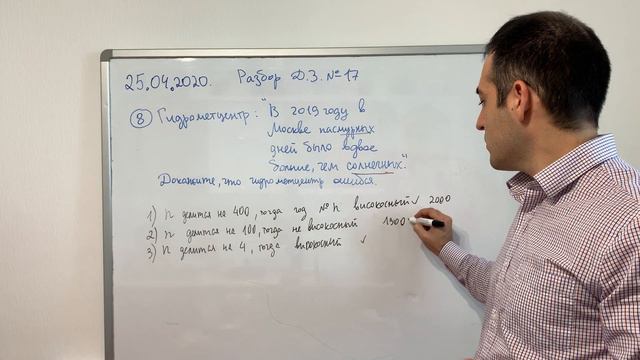 25.04.2020. Разбор Д.З. №17
⑧ Гидрометцентр: "В 2019 году в
Москве пасмурных
дней было вдвое
больше, чем солнечных".
Докажите, что гидрометцентр ошибся.
1) n делится на 400, тогда год №n високосный ✓ 2000
2) n делится на 100, тогда не високосный 1900
3) n делится на 4, тогда високосный ✓